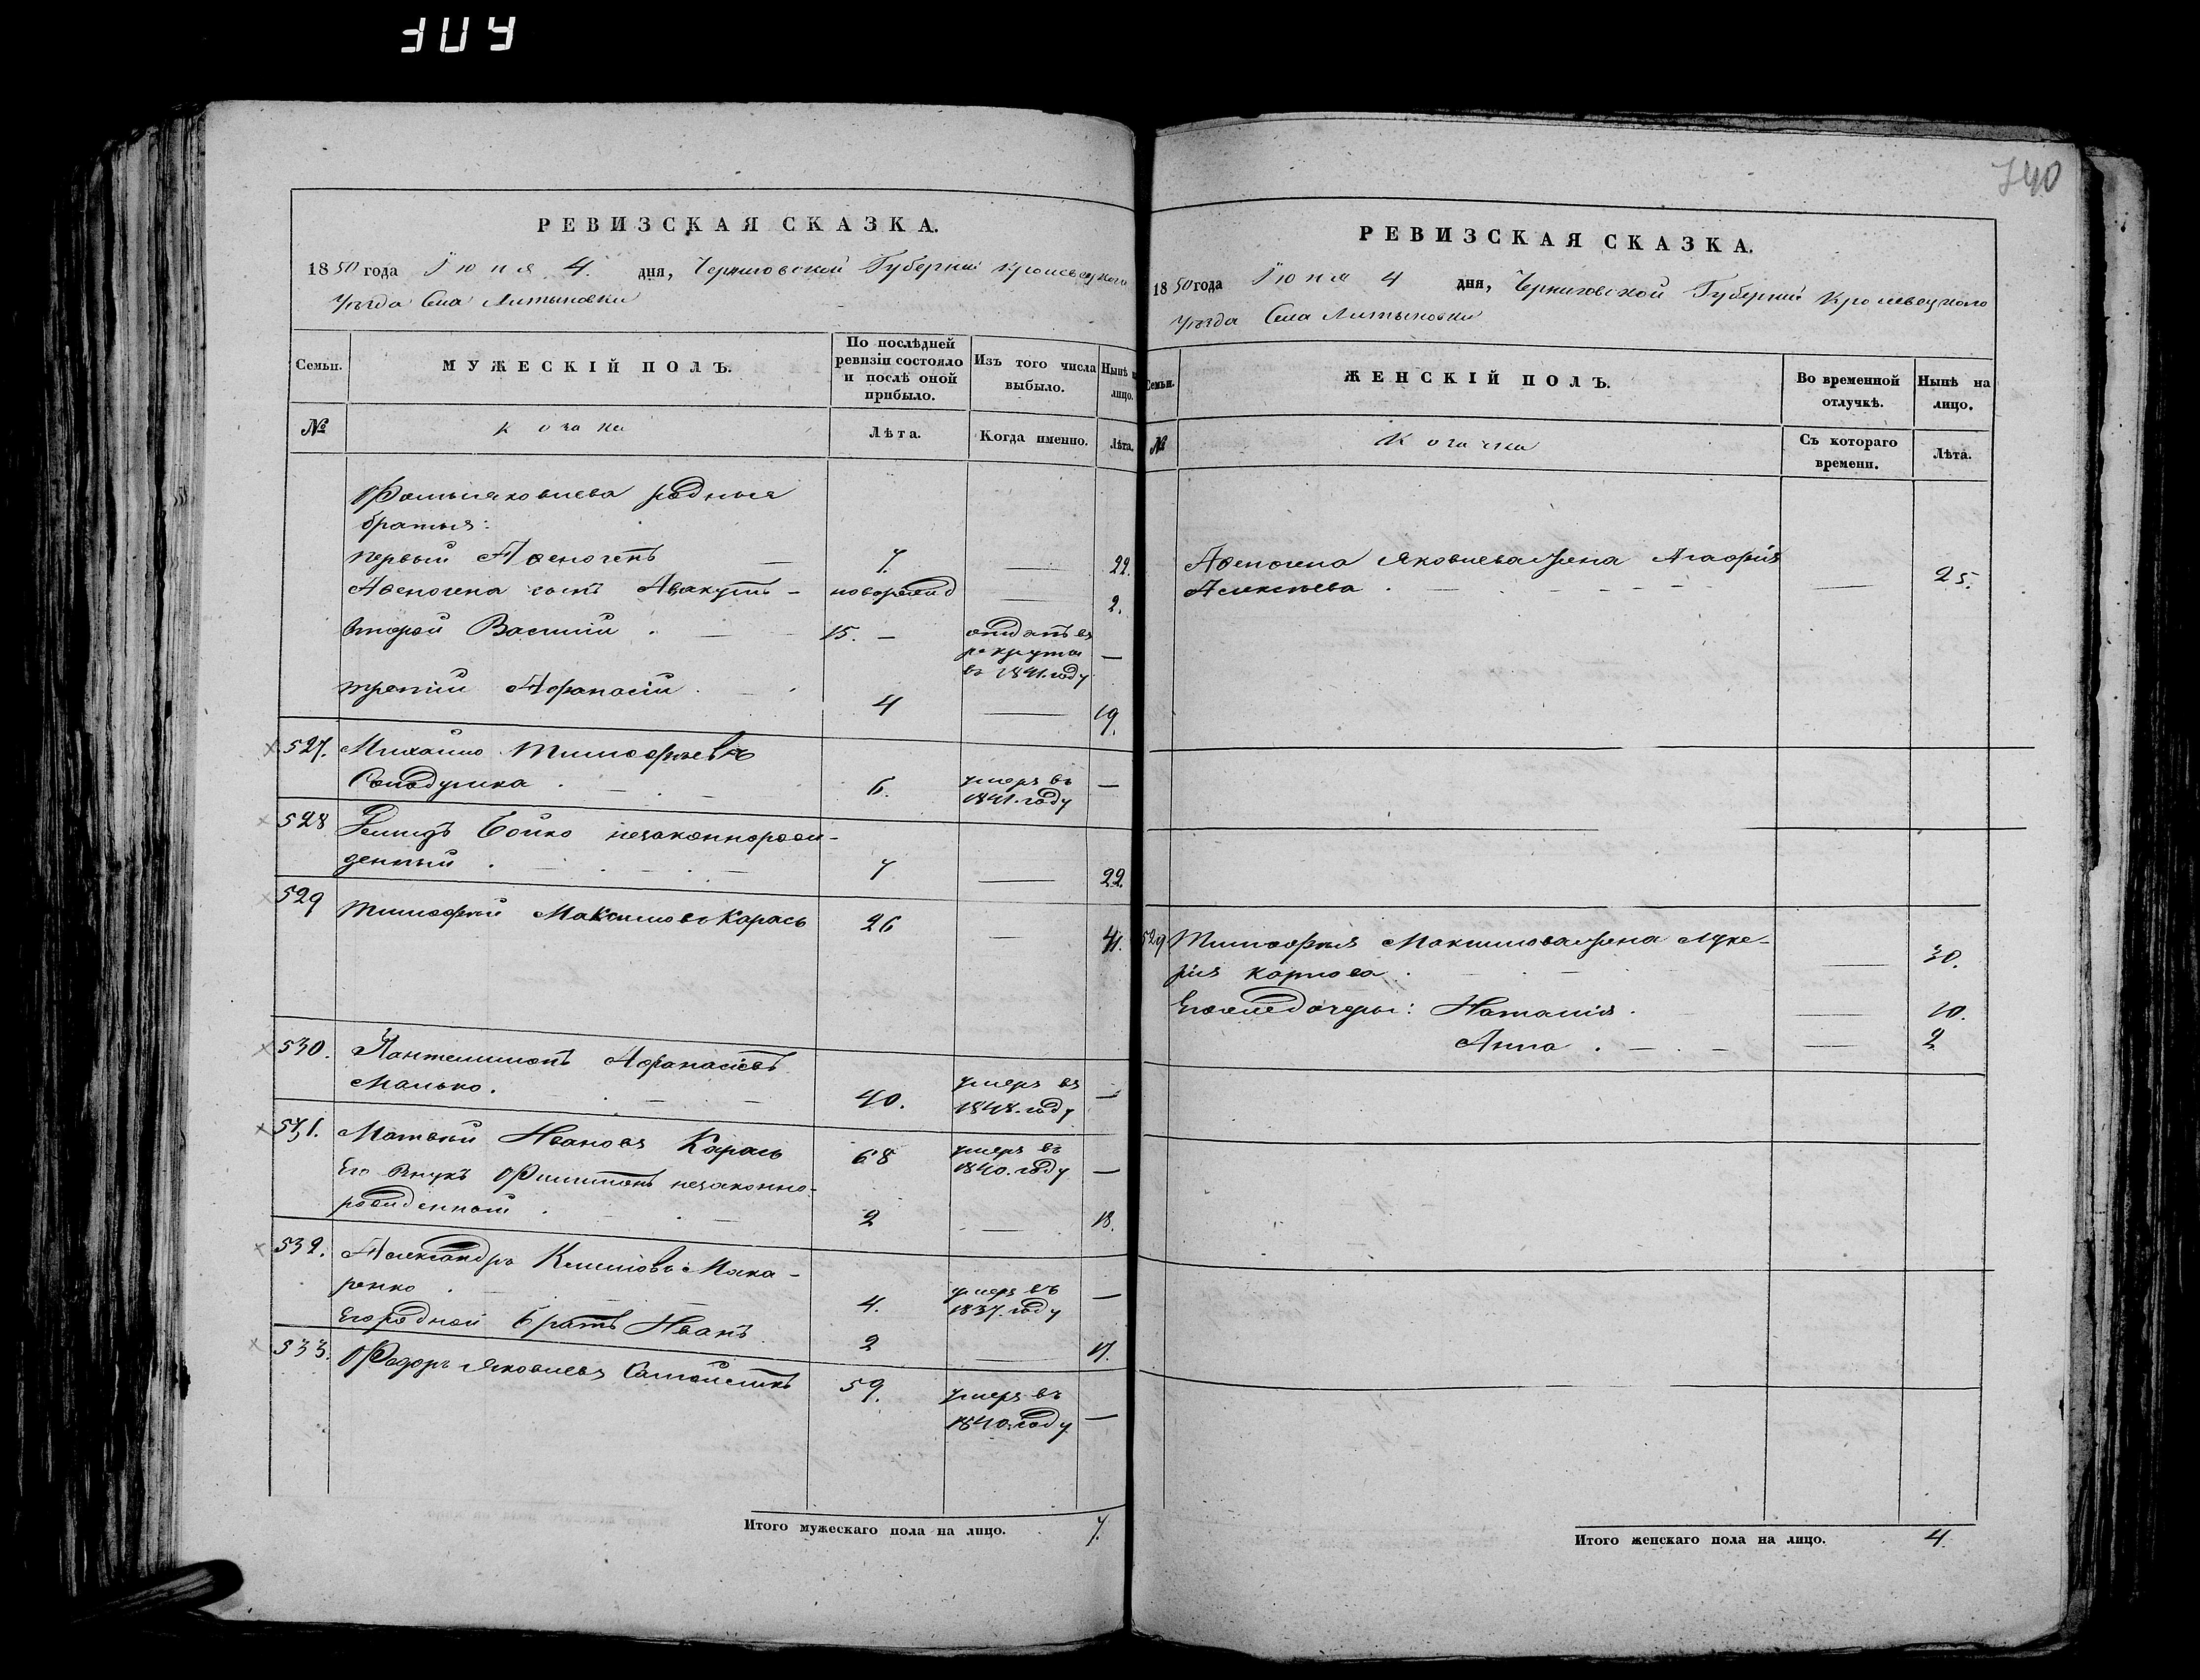 740
РЕВИЗСКАЯ СКАЗКА.
1850 года Июня 4. дня, Черниговской Губернии Кролевецкого
Уѣзда Села Литвиновки
Семьи.
МУЖЕСКІЙ ПОЛЪ.
По послѣдней ревизіи состояло и послѣ оной прибыло.
Изъ того числа выбыло.
Нынѣ на лицо.
№
Козаки
Лѣта.
Когда именно.
Лѣта.
Яковлева родныя
братья:
первый Авеногенъ — 7. — 22.
Авеногена сынъ Авакумъ — новорожд — 2.
второй Василий . — 15. — отданъ въ
рекруты —
въ 1841. году
третий Афанасій . — 4 — 19.
527. Михайло Тимофѣевъ
6. умеръ въ —
1841. году
528 Демидъ Бойко незаконнорож-
денный . — 7 — 22.
529 Тимофей Максимовъ Карась 26 — 41.
530. Пантелимонъ Афанасіевъ
Малько. — 40. умеръ въ —
1848. году
531. Матвѣй Ивановъ Карась 68 умеръ въ
1840. году —
Его внукъ Филимонъ незаконно-
рожденный . — 2 — 18.
532. Александръ Климовъ Мака-
ренко . — 4. умеръ въ —
1837. году
Его родной братъ Иванъ 2 — 17.
533. Федоръ Яковлевъ 59. умеръ въ
1840. году —
Итого мужескаго пола на лицо. 7.
РЕВИЗСКАЯ СКАЗКА.
1850 года Июня 4 дня, Черниговской Губернии Кролевецкого
Уѣзда Села Литвиновки
Семьи.
ЖЕНСКІЙ ПОЛЪ.
Во временной отлучкѣ.
Нынѣ на лицо.
№
Козачки
Съ котораго времени.
Лѣта.
Авеногена Яковлева жена Агафія
Алексѣева . — 25.
529 Тимофея Максимова жена Луке-
рія Карпова . — 30.
Его дочери: Наталія . — 10.
Анна . — 2
Итого женскаго пола на лицо. 4.